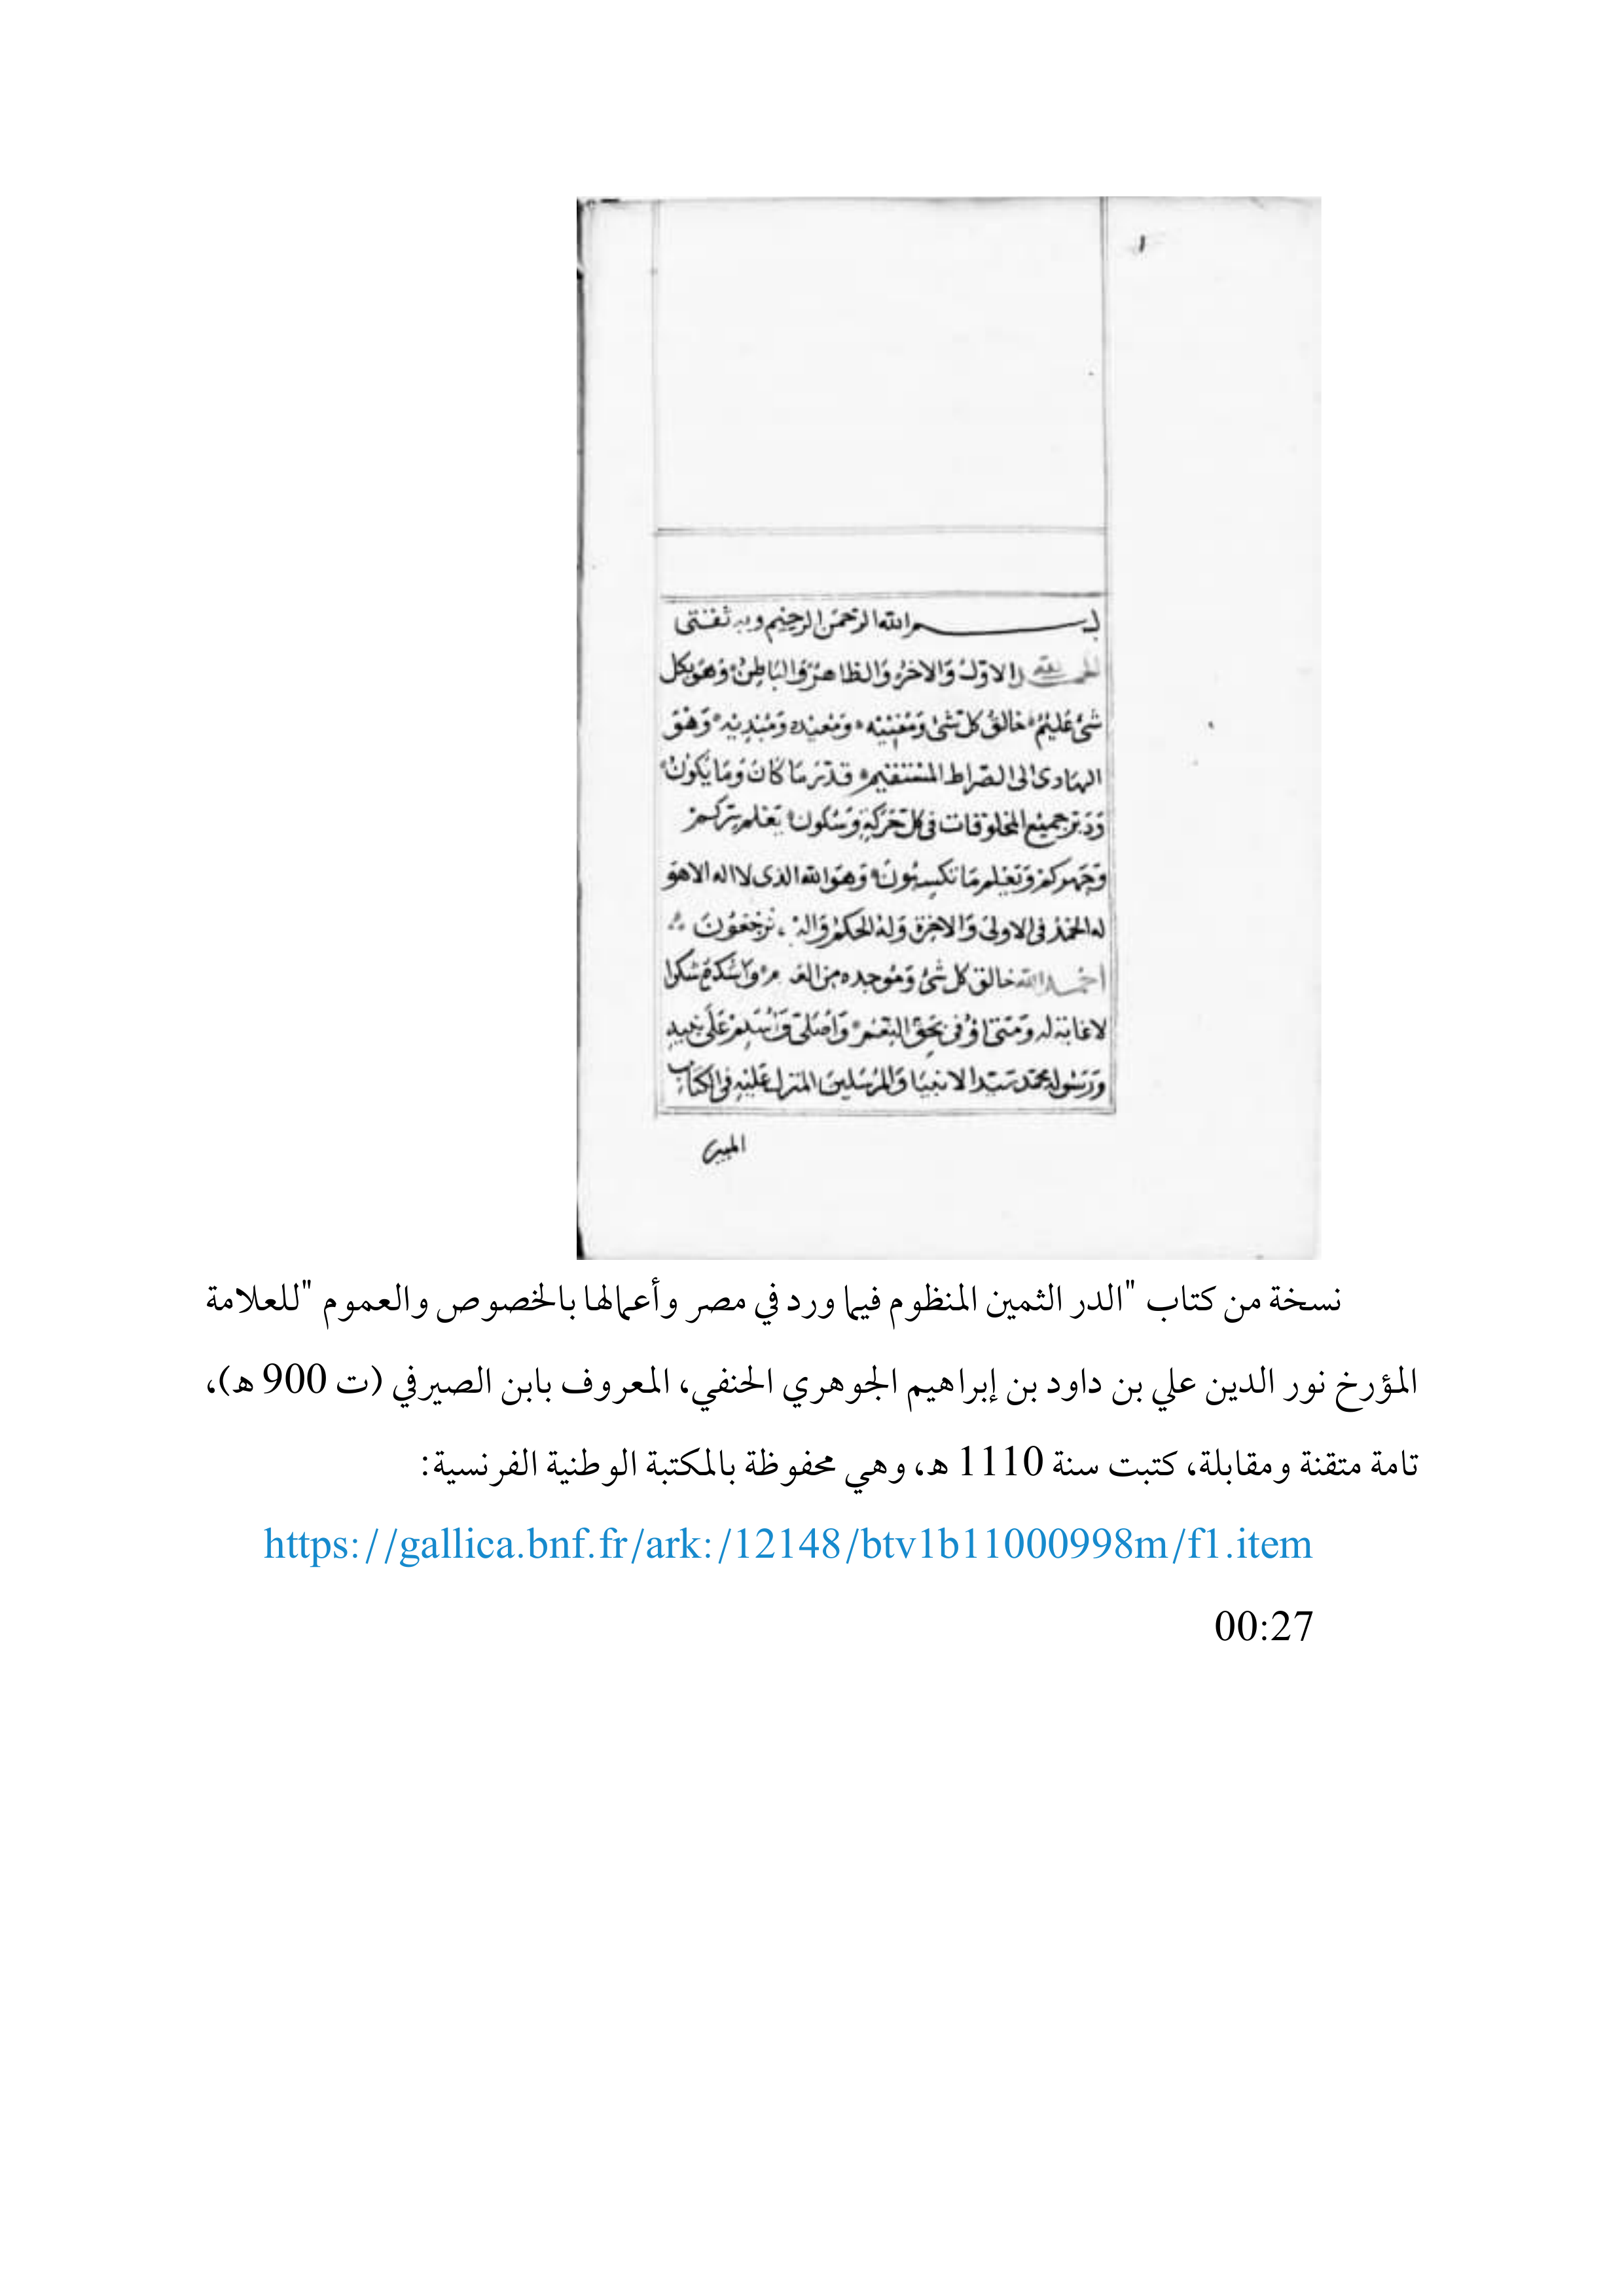 ١
بسم الله الرحمن الرحيم وبه ثقتي
الحمد لله الاول والاخر والظاهر والباطن وهو بكل
شئ عليم خالق كل شئ ومفنيه ومعيده ومبديه وهو
الهادى الى الصراط المستقيم قدر ما كان وما يكون
ودبر جميع المخلوقات فى كل حركة وسكون يعلم سركم
وجهركم ويعلم ما تكسبون وهو الله الذى لا اله الا هو
له الحمد فى الاولى والاخرة وله الحكم واليه ترجعون
احمد الله خالق كل شئ وموجده من العدم واشكره شكرا
لا غاية له ومتى اوفى بحق النعم واصلى واسلم على
ورسوله محمد سيد الانبيا والمرسلين المنزل عليه فى الكتاب
نسخة من كتاب "الدر الثمين المنظوم فيما ورد في مصر وأعمالها بالخصوص والعموم "للعلامة
المؤرخ نور الدين علي بن داود بن إبراهيم الجوهري الحنفي، المعروف بابن الصيرفي (ت 900 ه)،
تامة متقنة ومقابلة، كتبت سنة 1110 ه، وهي محفوظة بالمكتبة الوطنية الفرنسية:
https://gallica.bnf.fr/ark:/12148/btv1b11000998m/f1.item
00:27